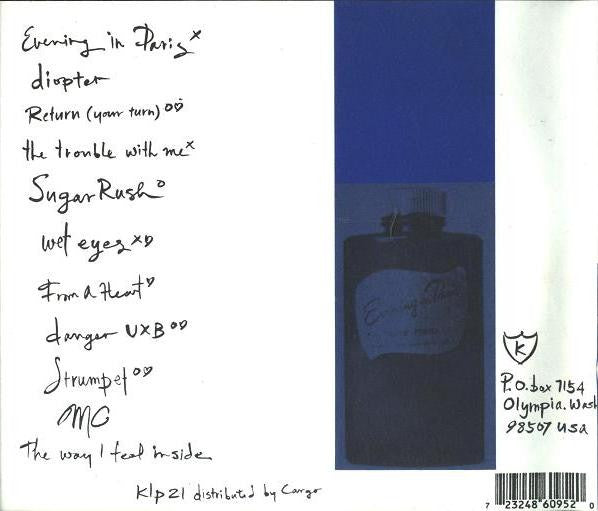 Evening in Paris x
diopter
Return (your turn) o♡
the trouble with me x
Sugar Rush o
wet eyes x♡
From a Heart ♡
danger UXB o♡
Strumpet o♡
MC
The way I feel inside
Klp21 distributed by Cargo
Evening in Paris
K
P.O. box 7154
Olympia. Wash
98507 USA
7 23248 60952 0